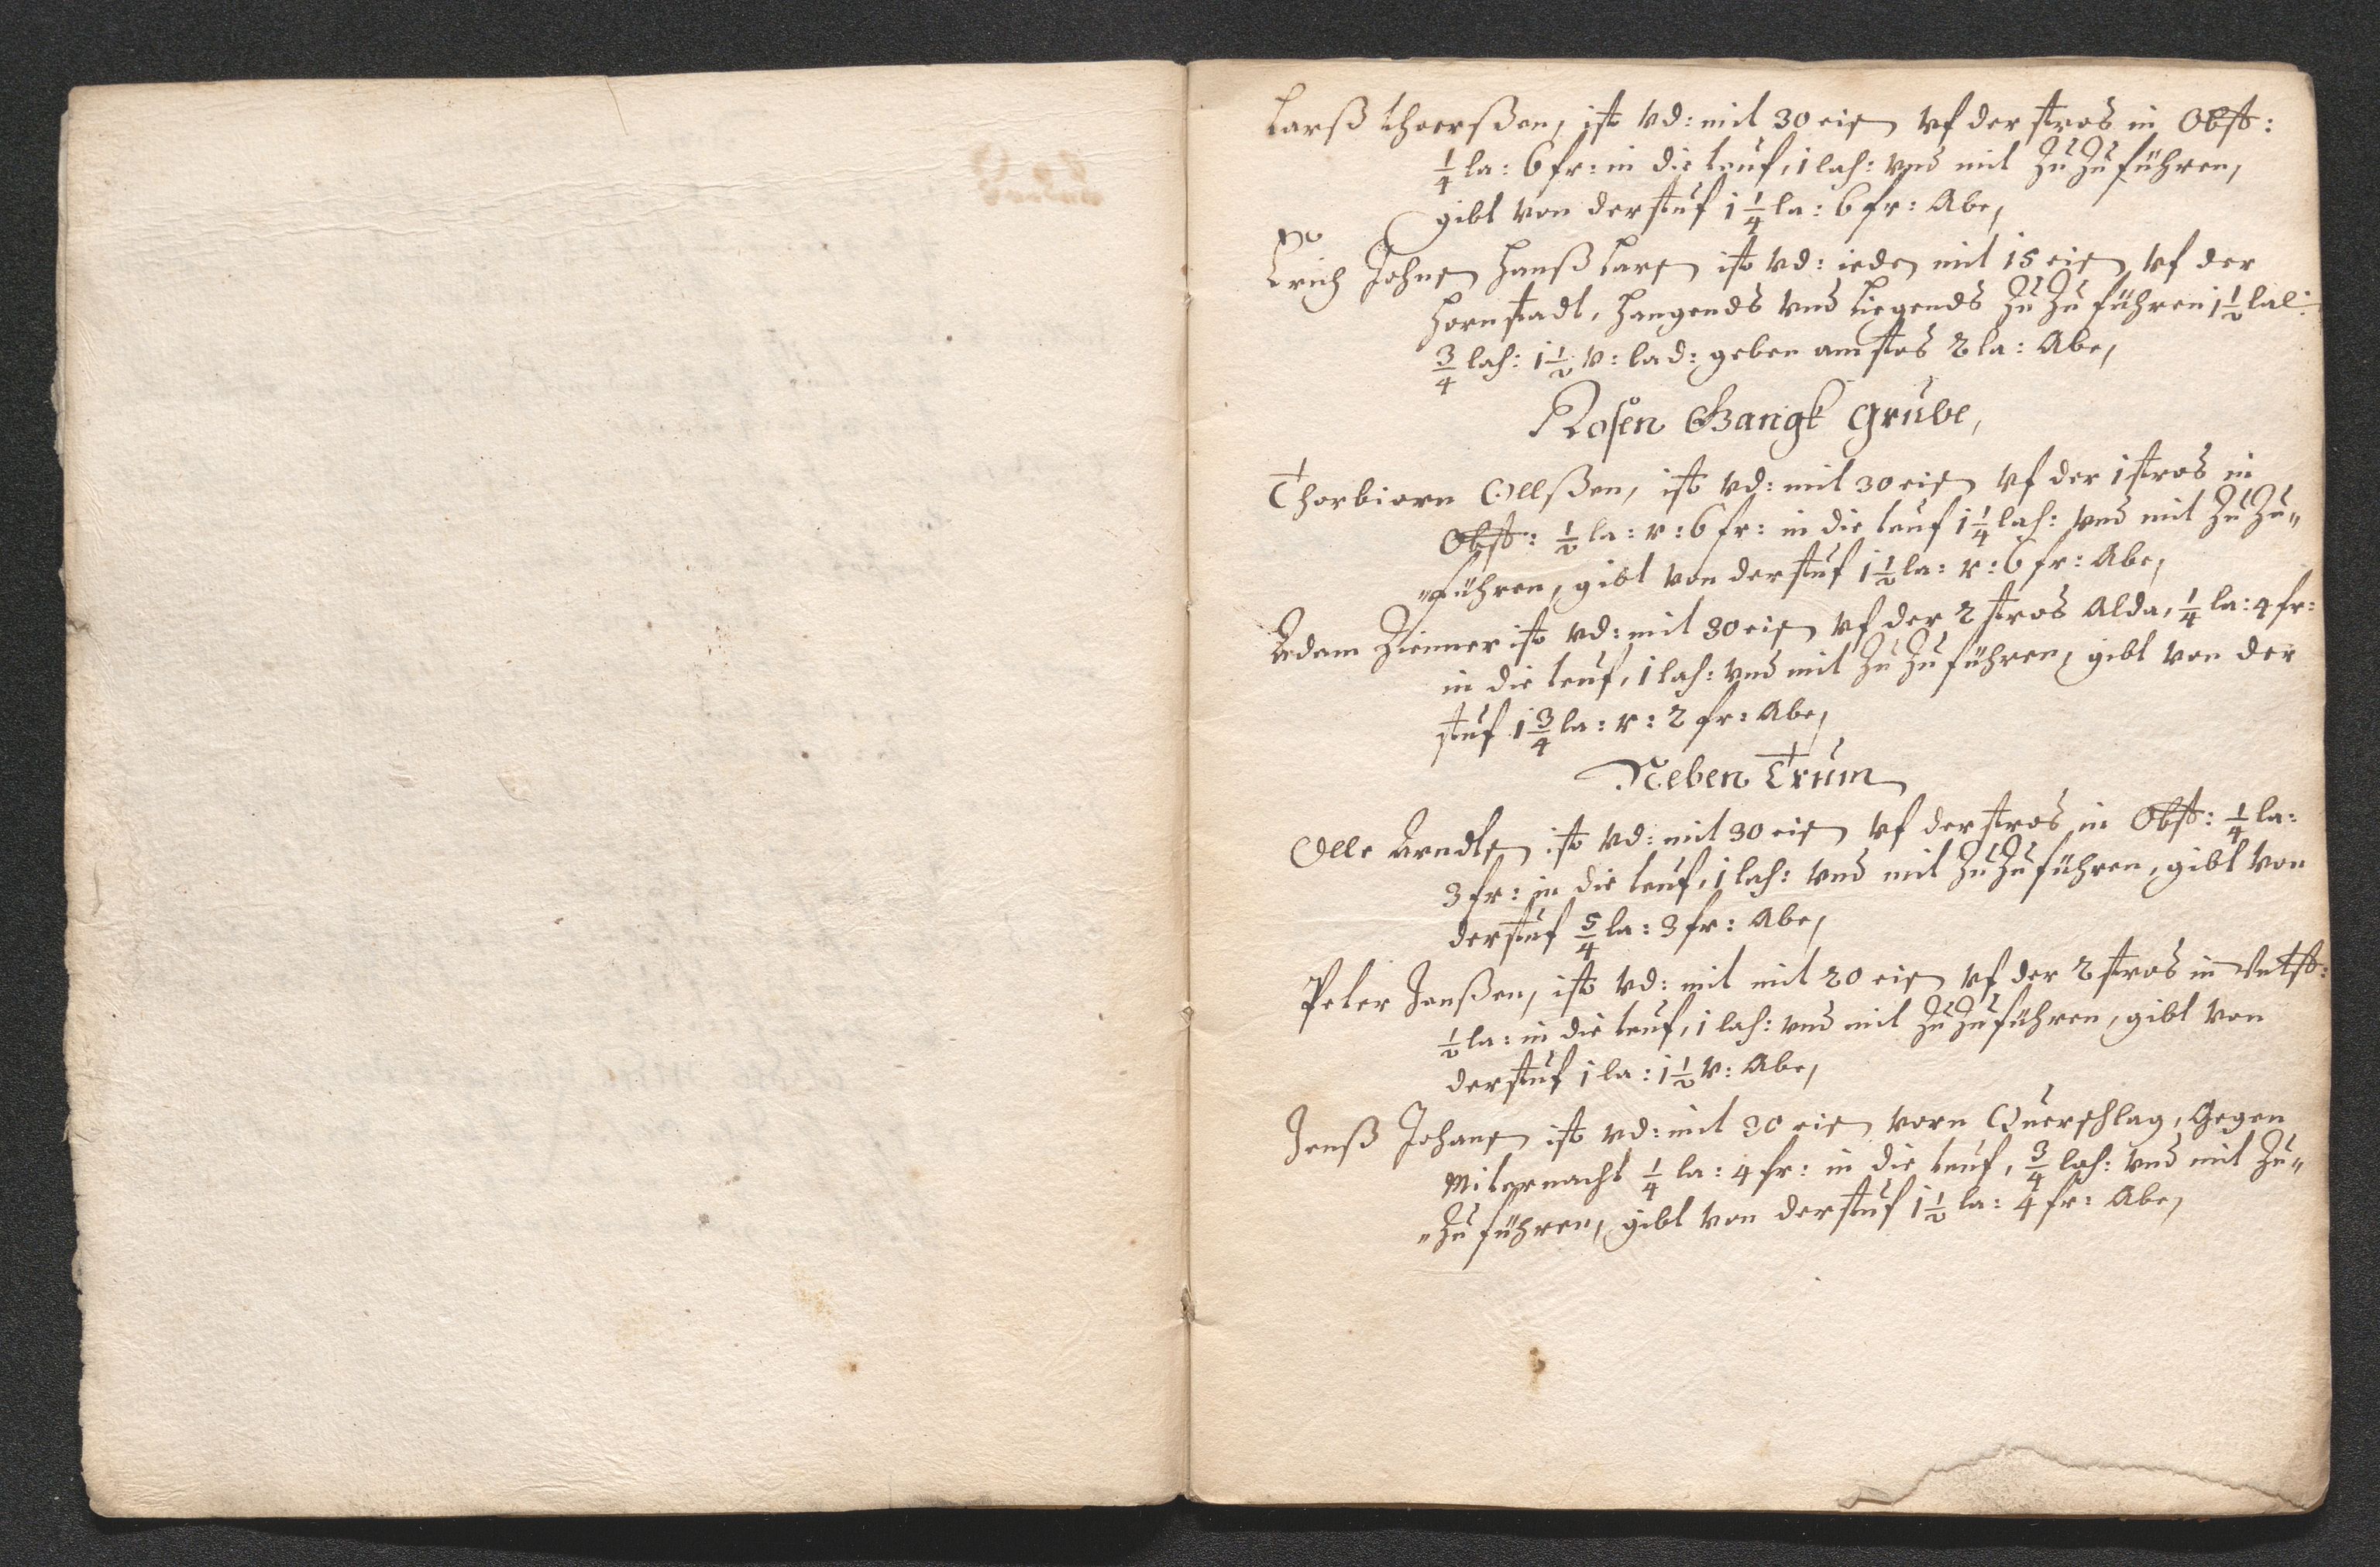 Larß thoerßen, ist vd: mit 30 eisn vf der stros in Obst:
1/4 la: 6 fr: in die teuf, 1 lach: vnd mit zu zu führen,
gibt von der stuf 1 1/4 la: 6 fr: Abe,
Erich Johnsn Hanß Larsn ist vd: ieder mit 15 eisn vf der
Hornstadt, Hangends vnd Liegends zu zu führen 1 1/2
3/4 lach: 1 1/2 v: lad: geben am stos 2 la: Abe,
Rosen Gangk Grube,
Thorbiorn Ollßen, ist vd: mit 30 eisn vf der 1 stros in
Obst: 1/2 la: v: 6 fr: in die teuf 1 1/4 lach: vnd mit zu zu„
„führen, gibt von der stuf 1 1/2 la: v: 6 fr: Abe,
Adam Zimmer ist vd: mit 30 eisn vf der 2 stros Alda, 1/4 la: 4 fr:
in die teuf, 1 lach: vnd mit zu zu führen, gibt von der
stuf 1 3/4 la: v: 2 fr: Abe,
Neben Trum
Olle Arndtsn ist vd: mit 30 eisn vf der stros in Obst: 1/4 la:
3 fr: in die teuf, 1 lach: vnd mit zu zu führen, gibt von
der stuf 5/4 la: 3 fr: Abe,
Peter Jenßen, ist vd: mit mit 20 eisn vf der 2 stros in Vntst:
1/2 la: in die teuf, 1 lach: vnd mit zu zu führen, gibt von
der stuf 1 la: 1 1/2 v: Abe,
Jenß Johansn ist vd: mit 30 eisn vorn Querschlag, Gegen
Miternacht 1/4 la: 4 fr: in die teuf, 3/4 lach: vnd mit zu„
„zu führen, gibt von der stuf 1 1/2 la: 4 fr: Abe,